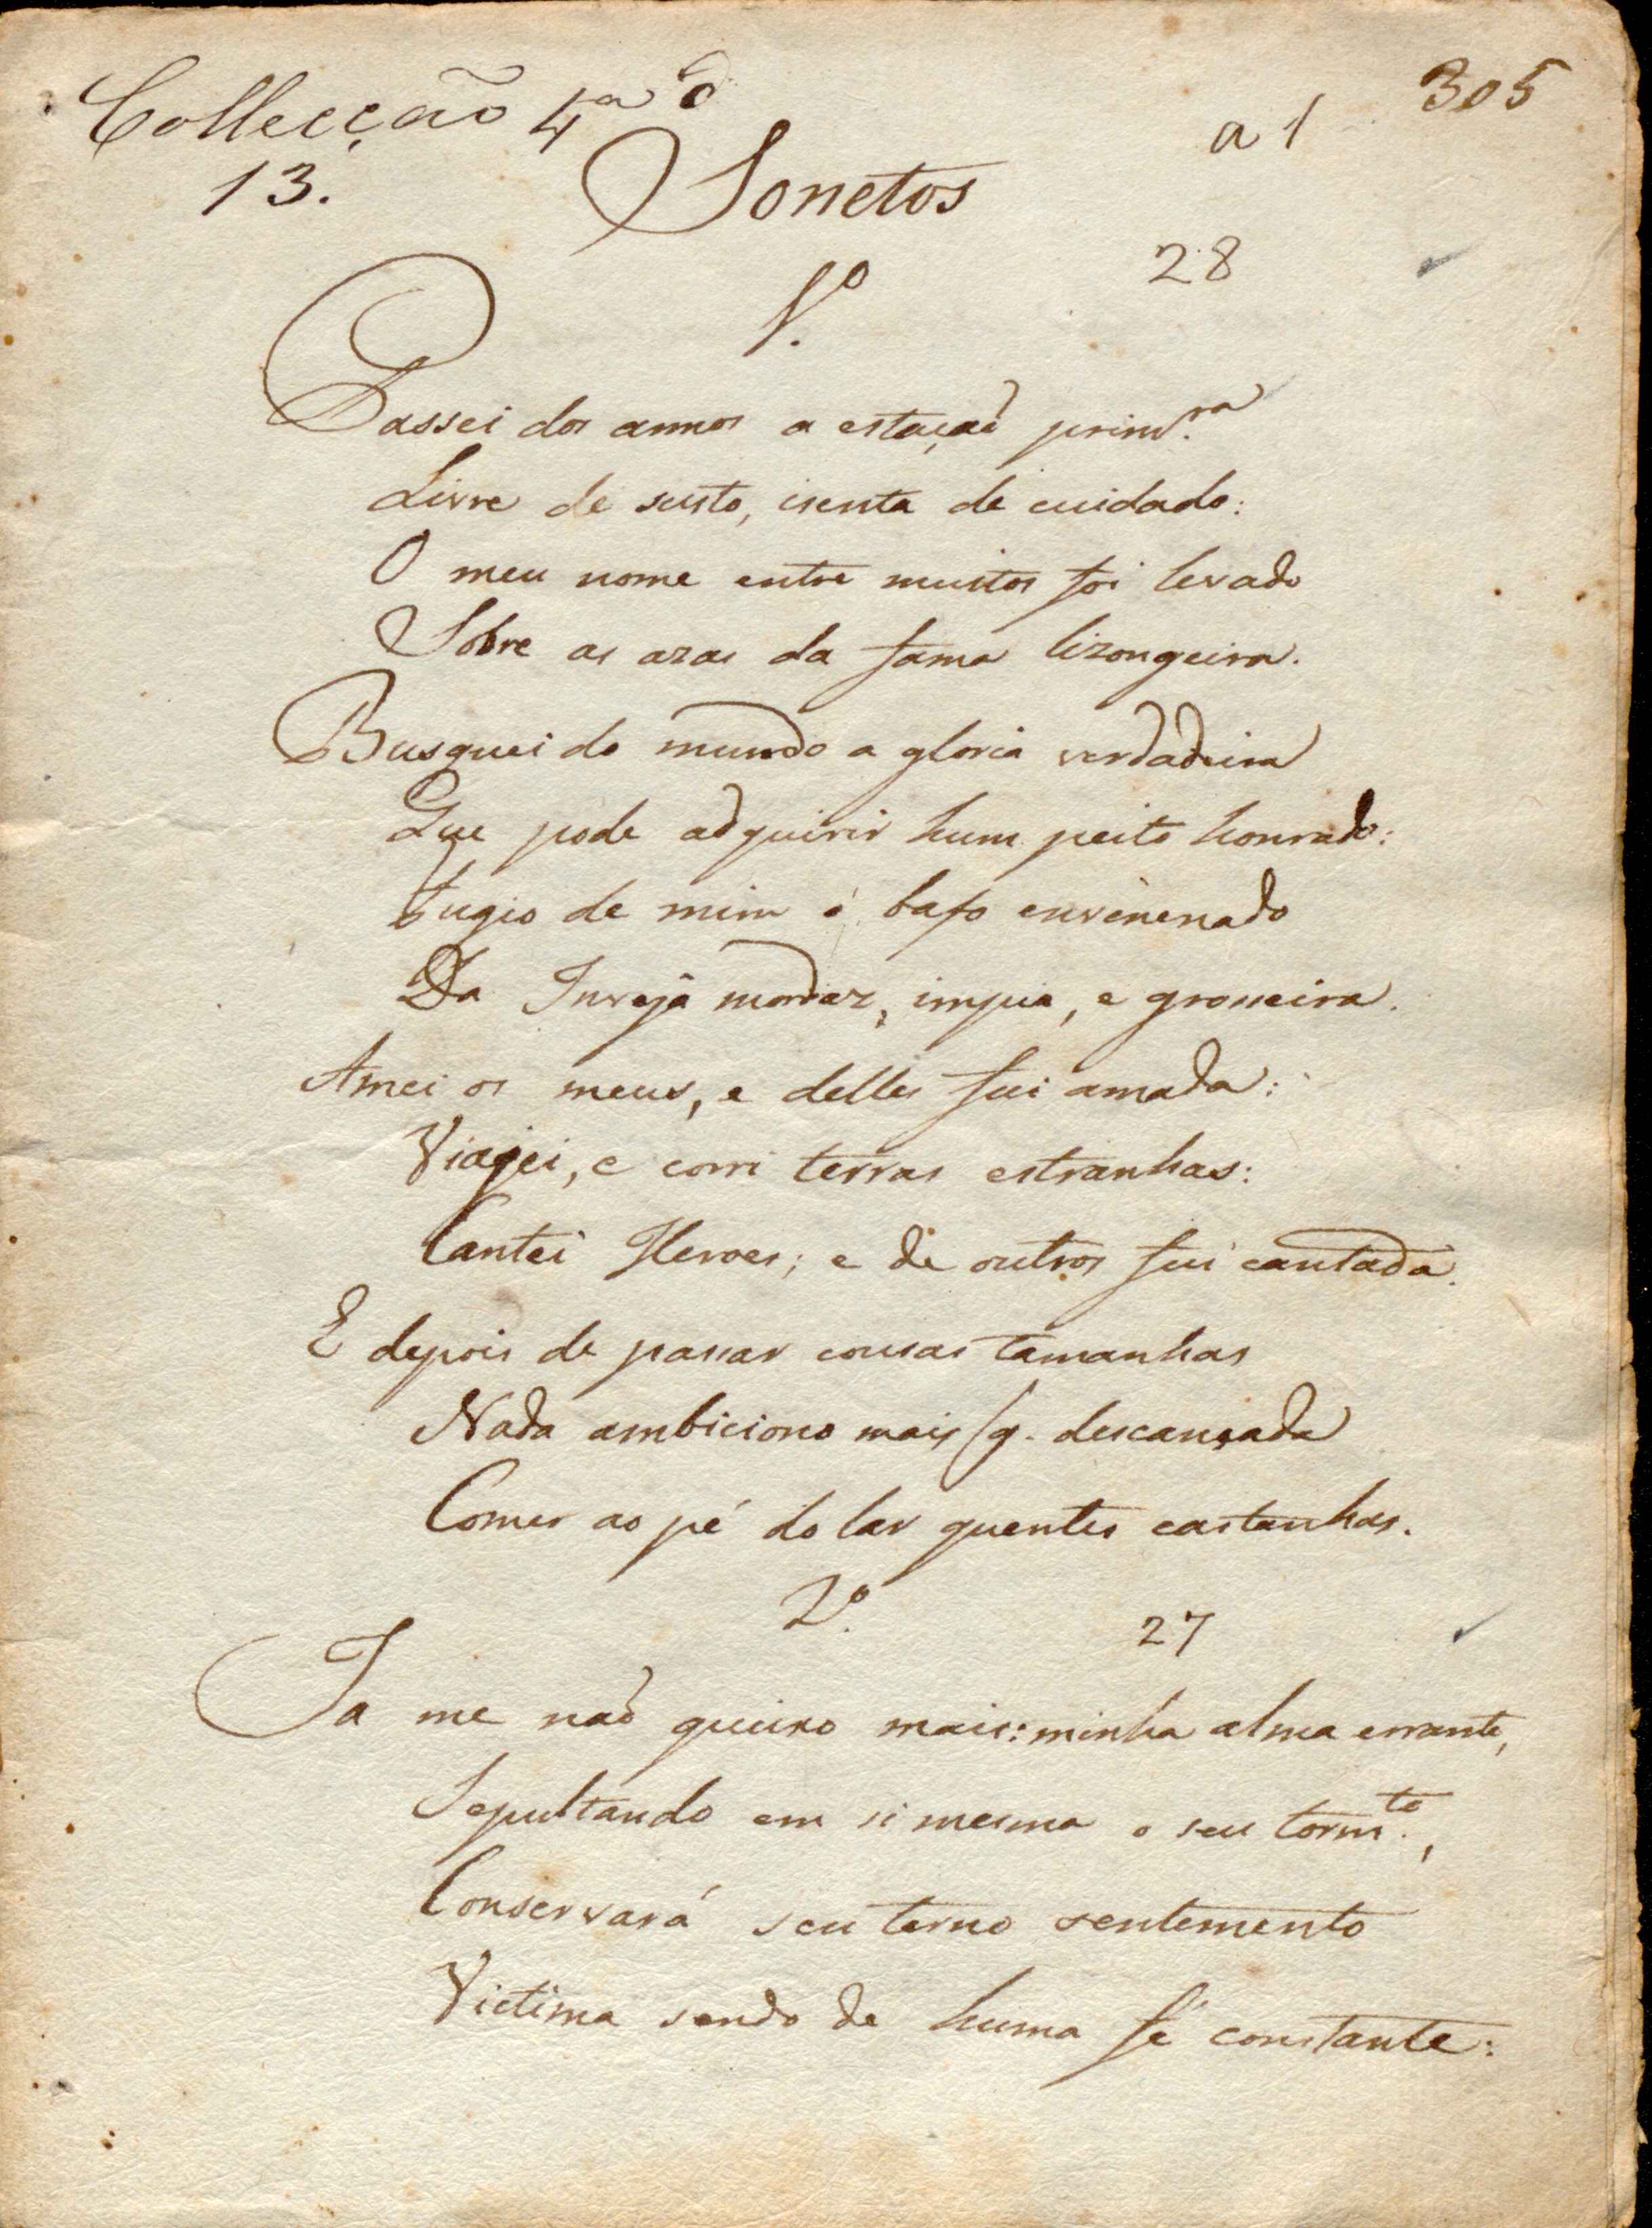 Collecçaõ 4ª
305
a 1
13.
Sonetos
1.º
28
Passei dos annos a estaçaõ prim.ra
Livre de susto, isenta de cuidado:
O meu nome entre muitos foi levado
Sobre as azas da fama lizongeira.
Busquei do mundo a gloria verdadeira
Que pode adquirir hum peito honrado:
Fugio de mim o bafo envenenado
Da Inveja mordaz, impia, e grosseira.
Amei os meus, e delles fui amada:
Viajei, e corri terras estranhas:
Cantei Heroes; e de outros fui cantada.
E depois de passar cousas tamanhas
Nada ambiciono mais q. descançada
Comer ao pé do lar quentes castanhas.
2.º
27
Ja me naõ queixo mais: minha alma errante,
Sepultando em si mesma o seu torm.to,
Conservará seu terno sentemento
Victima sendo de huma fé constante: